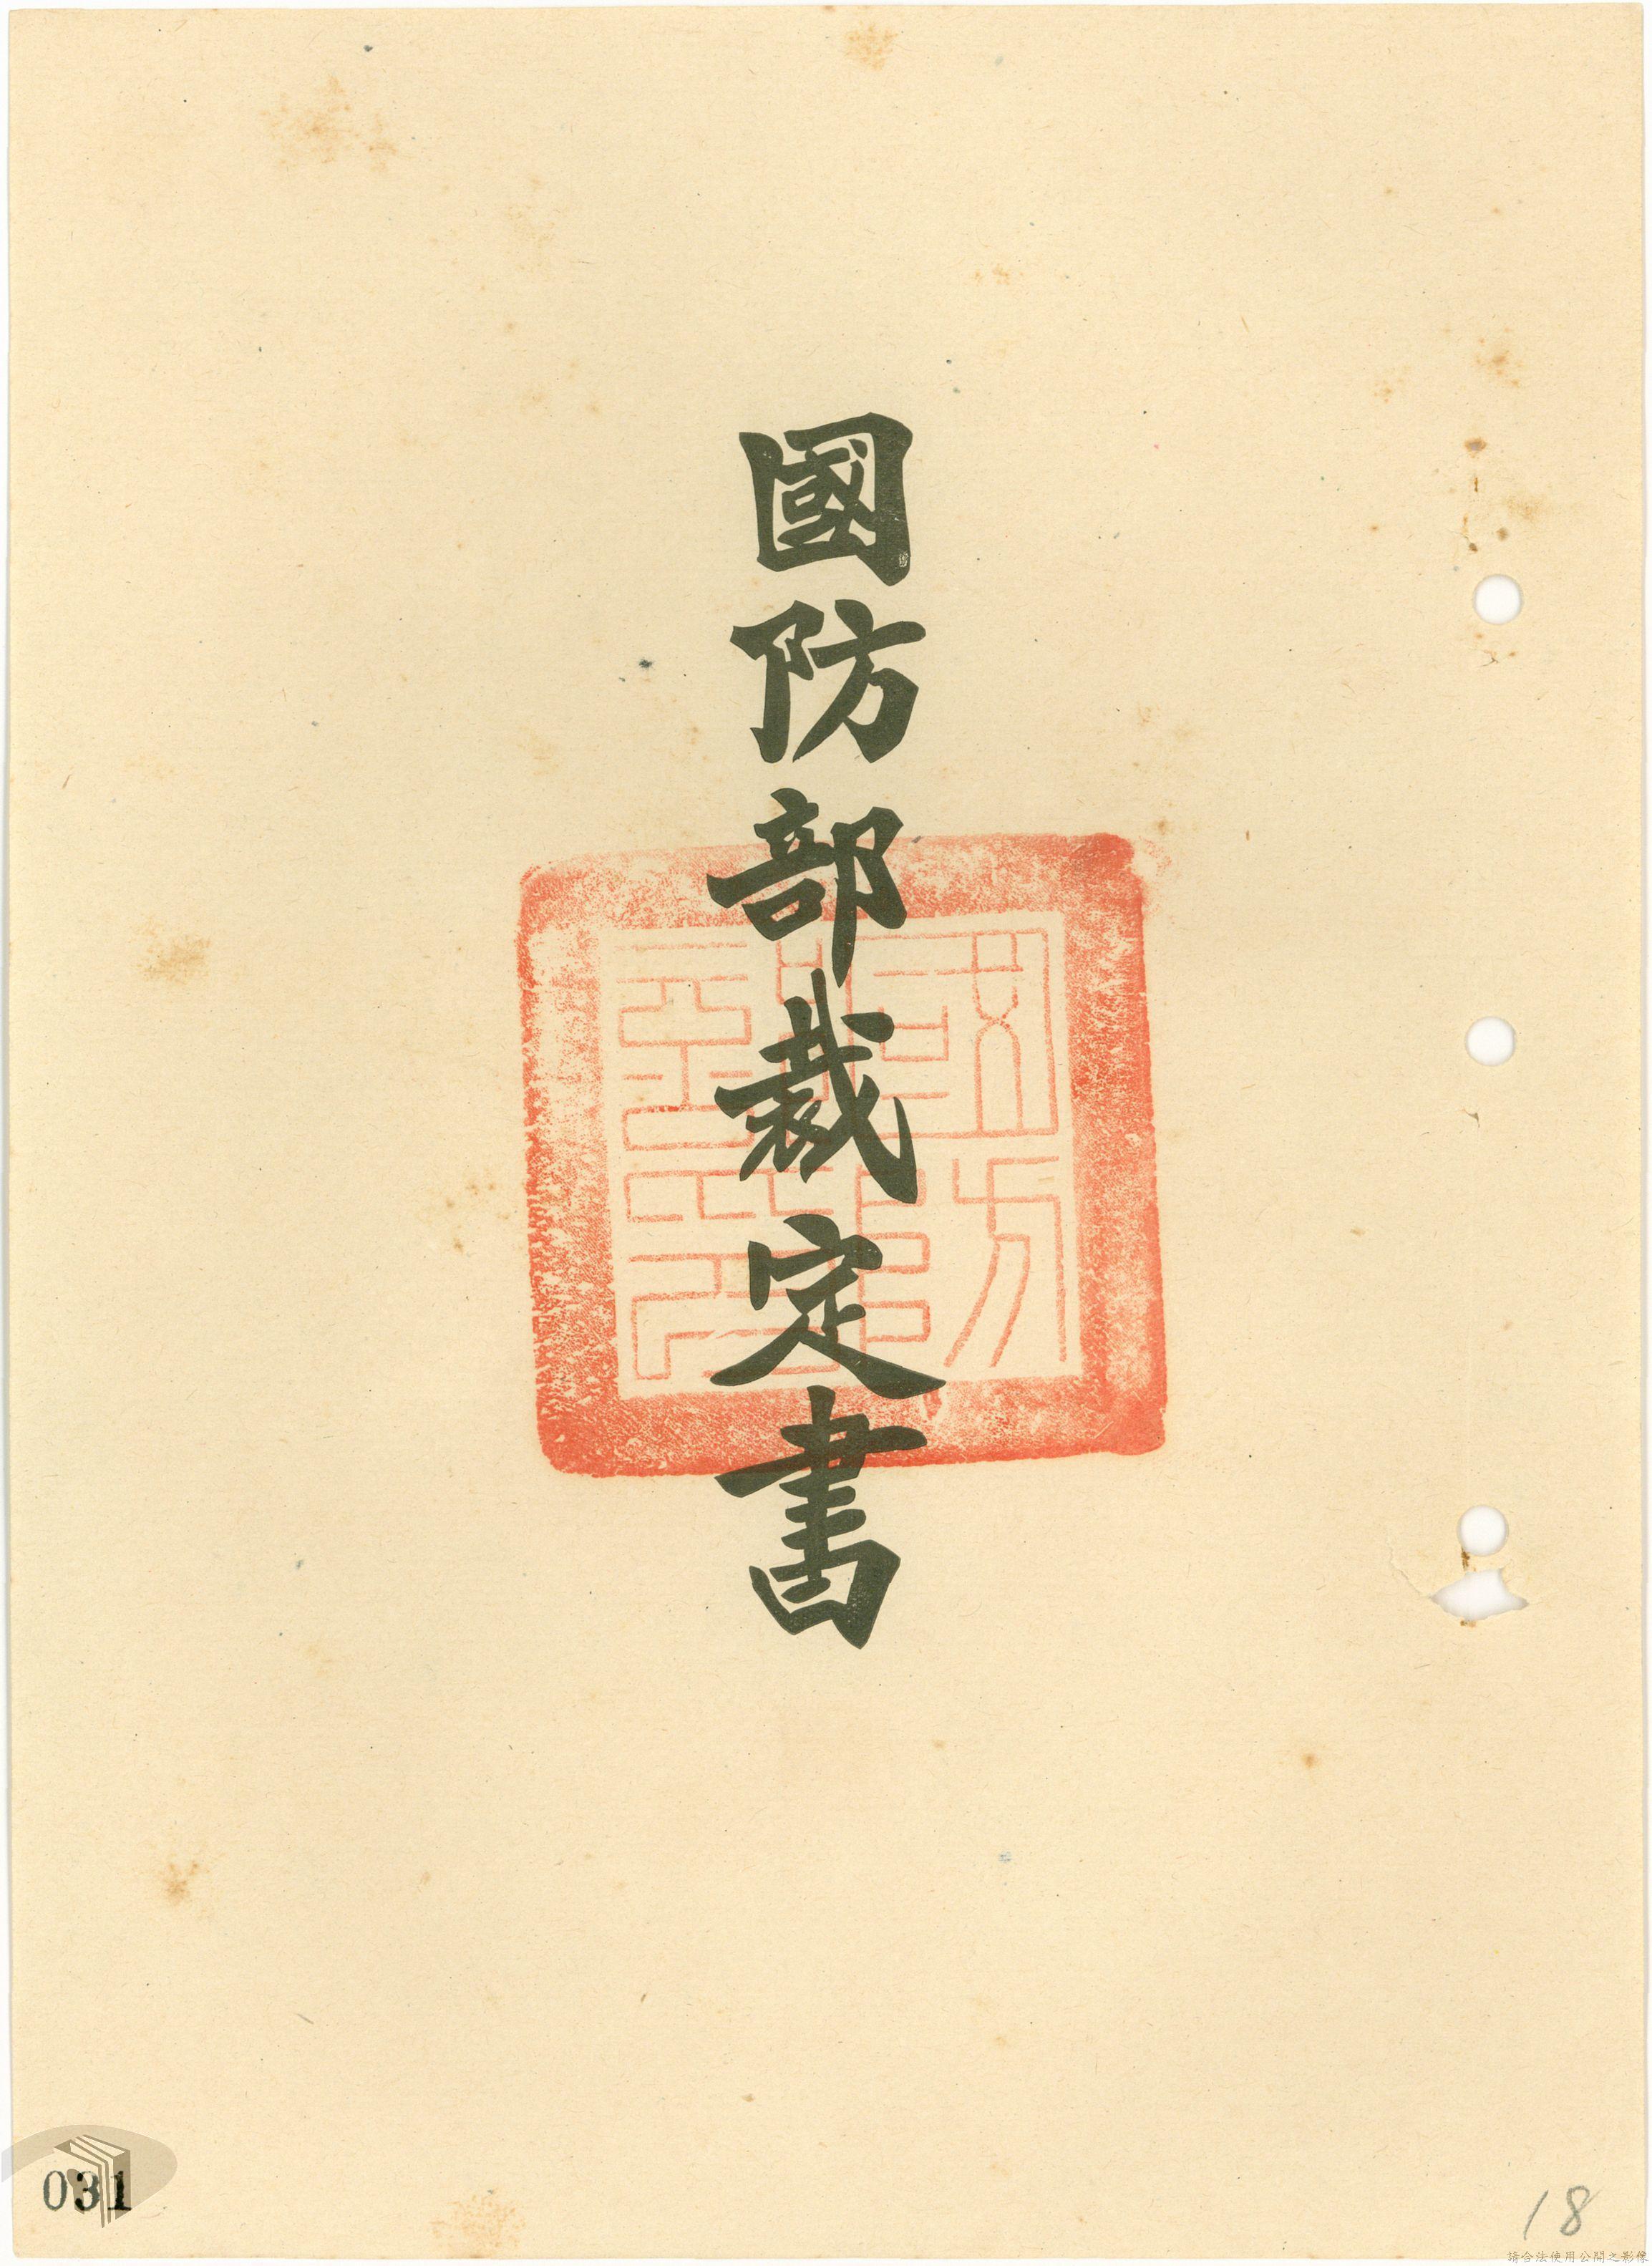 國防部裁定書
國防部印
031
18
請合法使用公開之影像